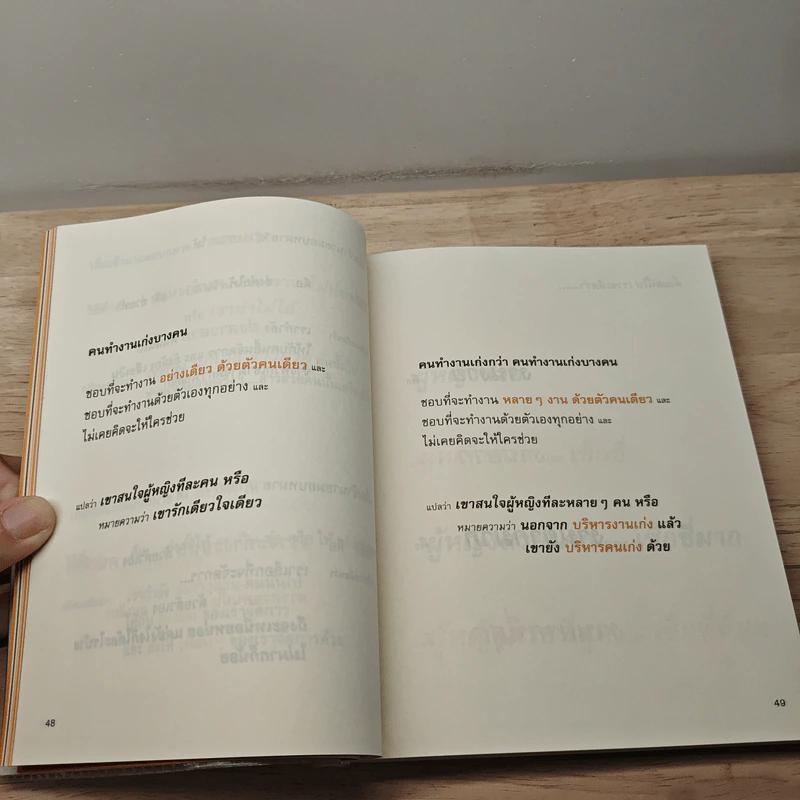 คนทำงานเก่งบางคน
ชอบที่จะทำงาน อย่างเดียว ด้วยตัวคนเดียว และ
ชอบที่จะทำงานด้วยตัวเองทุกอย่าง และ
ไม่เคยคิดจะให้ใครช่วย
แปลว่า เขาสนใจผู้หญิงทีละคน หรือ
หมายความว่า เขารักเดียวใจเดียว
48
คนทำงานเก่งกว่า คนทำงานเก่งบางคน
ชอบที่จะทำงาน หลาย ๆ งาน ด้วยตัวคนเดียว และ
ชอบที่จะทำงานด้วยตัวเองทุกอย่าง และ
ไม่เคยคิดจะให้ใครช่วย
แปลว่า เขาสนใจผู้หญิงทีละหลาย ๆ คน หรือ
หมายความว่า นอกจาก บริหารงานเก่ง แล้ว
เขายัง บริหารคนเก่ง ด้วย
49